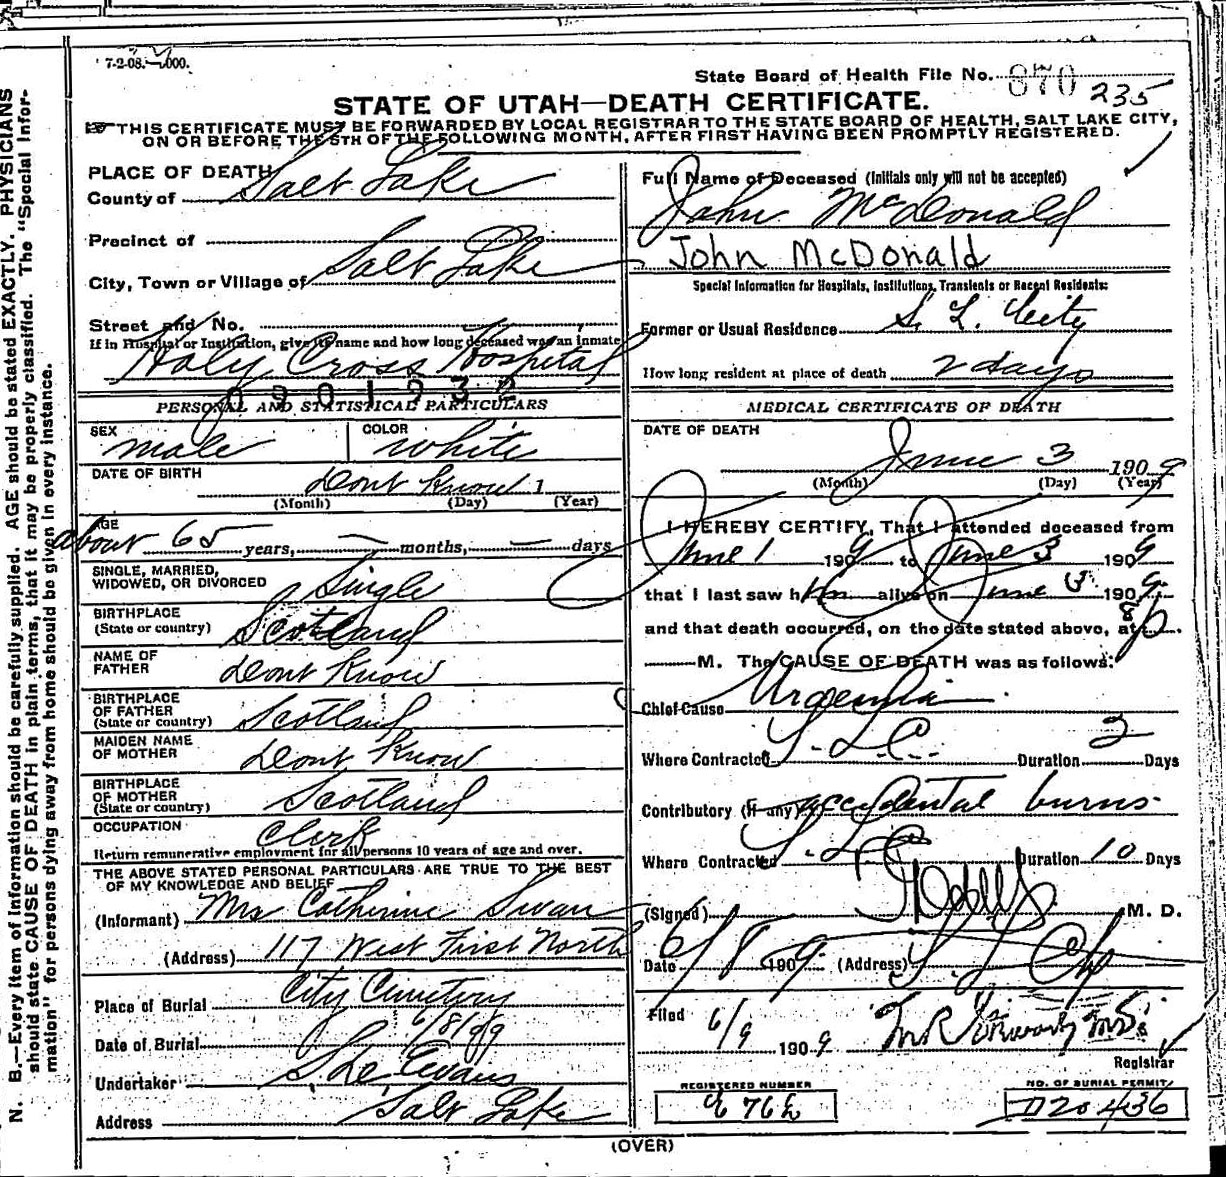 7-2-08.—5,000.
State Board of Health File No. 870 235
STATE OF UTAH—DEATH CERTIFICATE.
THIS CERTIFICATE MUST BE FORWARDED BY LOCAL REGISTRAR TO THE STATE BOARD OF HEALTH, SALT LAKE CITY,
ON OR BEFORE THE 5TH OF THE FOLLOWING MONTH, AFTER FIRST HAVING BEEN PROMPTLY REGISTERED.
PLACE OF DEATH
County of Salt Lake
Precinct of
City, Town or Village of Salt Lake
Street and No.
If in Hospital or Institution, give its name and how long deceased was an inmate
Holy Cross Hospital
0901932
PERSONAL AND STATISTICAL PARTICULARS
SEX male COLOR white
DATE OF BIRTH Dont Know 1
(Month) (Day) (Year)
AGE about 65 years, — months, — days
SINGLE, MARRIED,
WIDOWED, OR DIVORCED Single
BIRTHPLACE
(State or country) Scotland
NAME OF
FATHER Dont Know
BIRTHPLACE
OF FATHER
(State or country) Scotland
MAIDEN NAME
OF MOTHER Dont Know
BIRTHPLACE
OF MOTHER
(State or country) Scotland
OCCUPATION Clerk
Return remunerative employment for all persons 10 years of age and over.
THE ABOVE STATED PERSONAL PARTICULARS ARE TRUE TO THE BEST
OF MY KNOWLEDGE AND BELIEF
(Informant) Mrs Catherine Swan
(Address) 117 West First North
Place of Burial City Cemetery
Date of Burial 6/8/09
Undertaker Evans
Address Salt Lake
Full Name of Deceased (Initials only will not be accepted)
John McDonald
John McDonald
Special Information for Hospitals, Institutions, Transients or Recent Residents:
Former or Usual Residence S. L. City
How long resident at place of death 2 days
MEDICAL CERTIFICATE OF DEATH
DATE OF DEATH
June 3 1909
(Month) (Day) (Year)
I HEREBY CERTIFY, That I attended deceased from
June 1 1909 to June 3 1909
that I last saw him alive on June 3 1909
and that death occurred, on the date stated above, at 8 p
M. The CAUSE OF DEATH was as follows:
Chief Cause Uraemia
Where Contracted S. L. C. Duration 2 Days
Contributory (If any) accidental burns
Where Contracted S. L. C. Duration 10 Days
(Signed) M. D.
Date 6/8 1909 (Address) S. L. City
Filed 6/9 1909
Registrar
REGISTERED NUMBER
NO. OF BURIAL PERMIT
D20436
(OVER)
N. B.—Every item of information should be carefully supplied. AGE should be stated EXACTLY. PHYSICIANS
should state CAUSE OF DEATH in plain terms, that it may be properly classified. The "Special Infor-
mation" for persons dying away from home should be given in every instance.